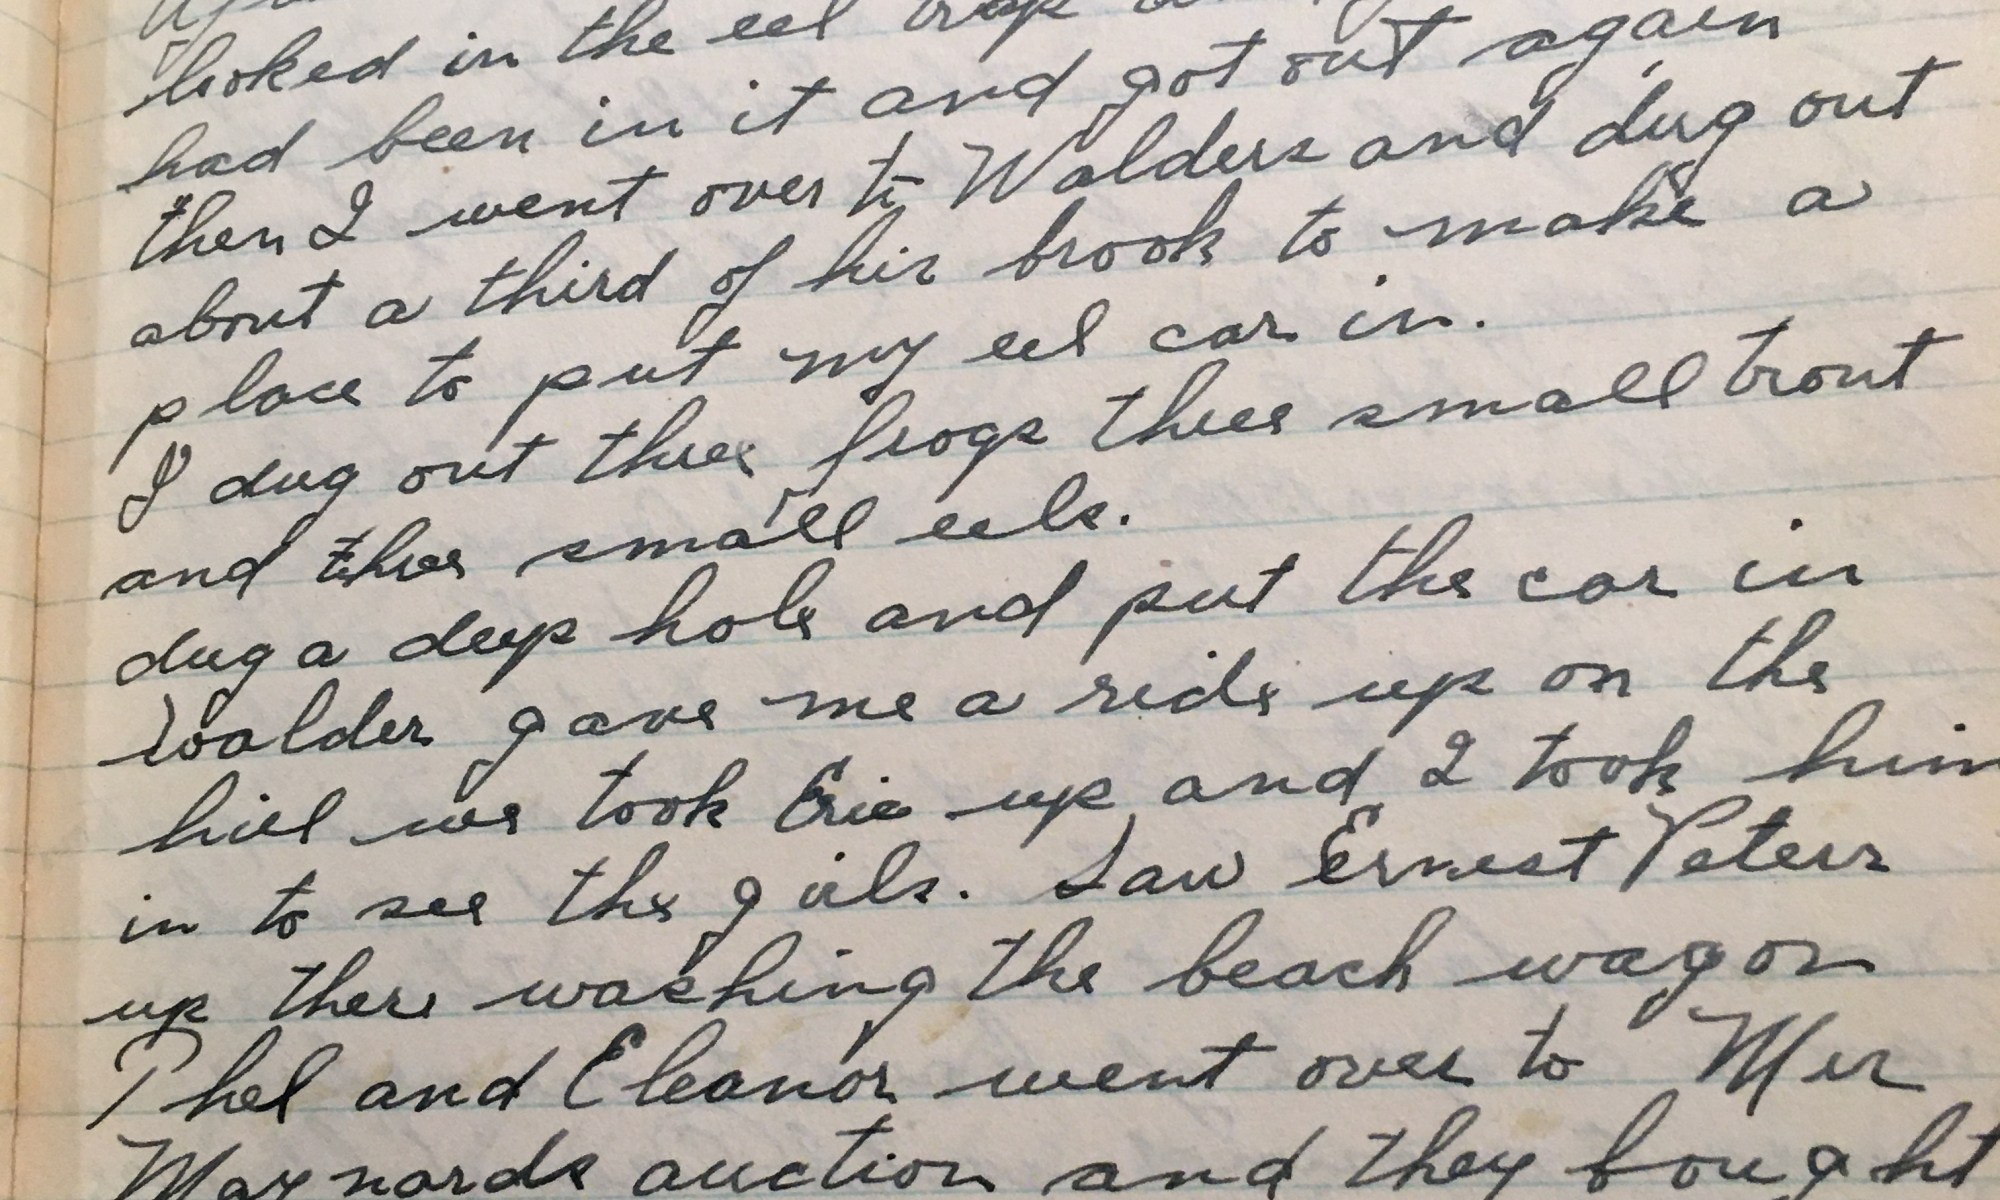 looked in the eel trap
had been in it and got out again
then I went over to Walders and dug out
about a third of his brook to make a
place to put my eel car in.
I dug out three frogs three small trout
and three small eels.
dug a deep hole and put the car in
Walder gave me a ride up on the
hill we took Eric up and I took him
in to see the girls. Saw Ernest Peters
up there washing the beach wagon
Phel and Eleanor went over to Mrs
Maynards auction and they bought